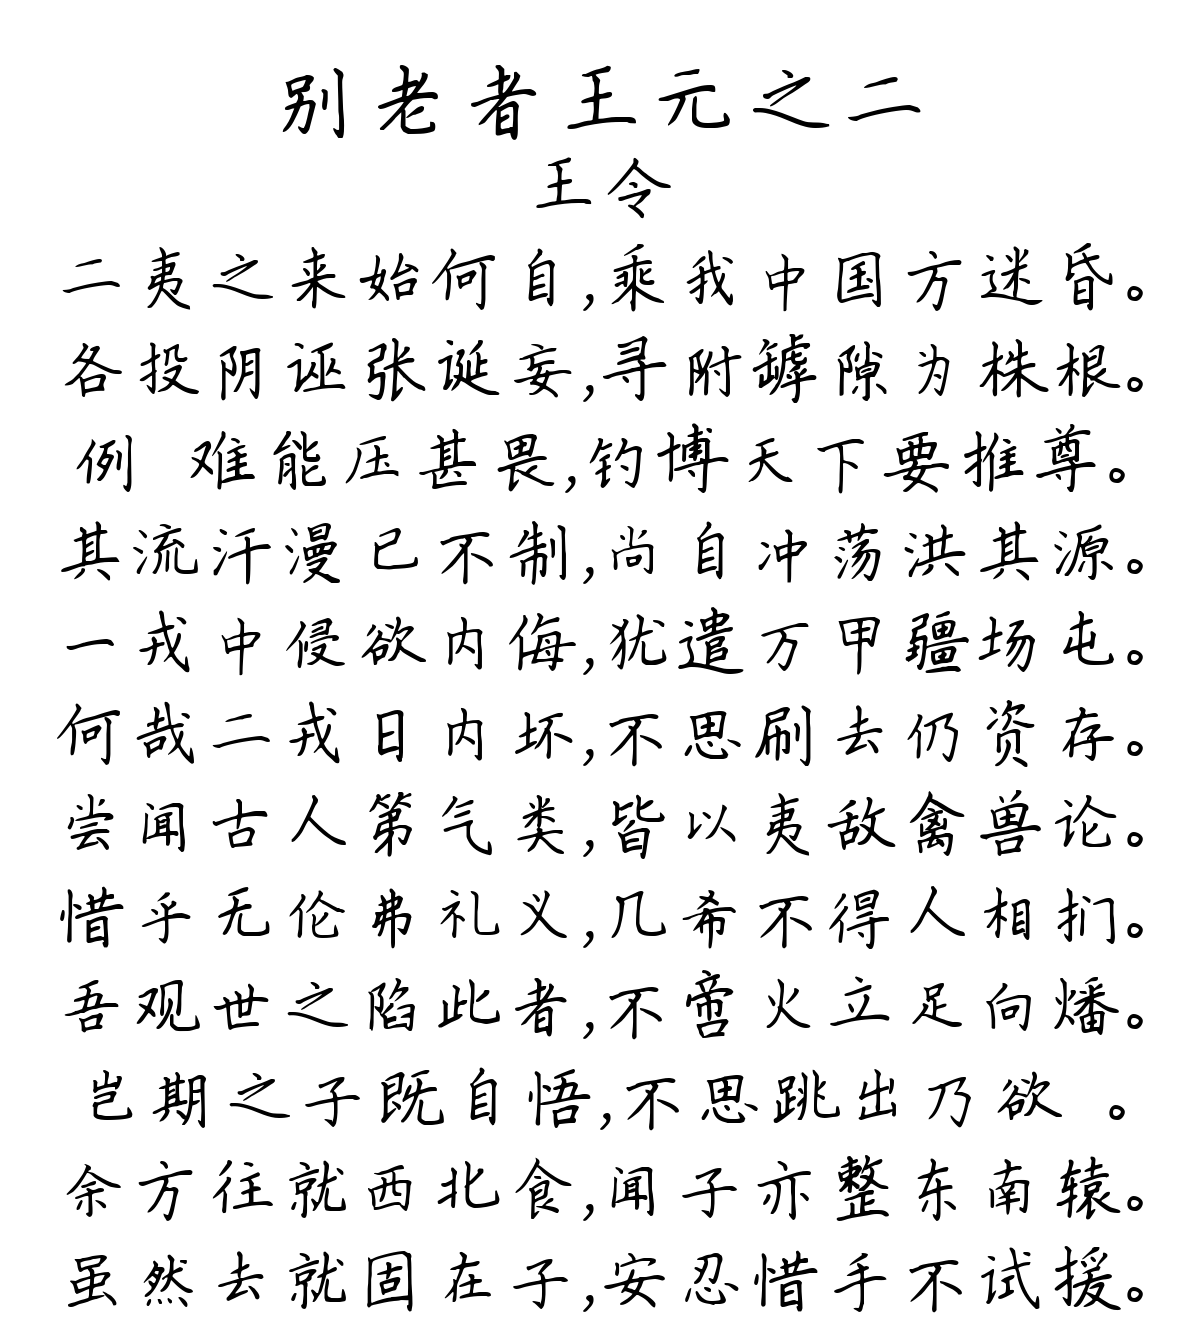 别老者王元之二
王令
二夷之来始何自,乘我中国方迷昏。
各投阴诬张诞妄,寻附罅隙为株根。
例 难能压甚畏,钓博天下要推尊。
其流汗漫已不制,尚自冲荡洪其源。
一戎中侵欲内侮,犹遣万甲疆场屯。
何哉二戎日内坏,不思刷去仍资存。
尝闻古人第气类,皆以夷敌禽兽论。
惜乎无伦弗礼义,几希不得人相扪。
吾观世之陷此者,不啻火立足向燔。
岂期之子既自悟,不思跳出乃欲 。
余方往就西北食,闻子亦整东南辕。
虽然去就固在子,安忍惜手不试援。